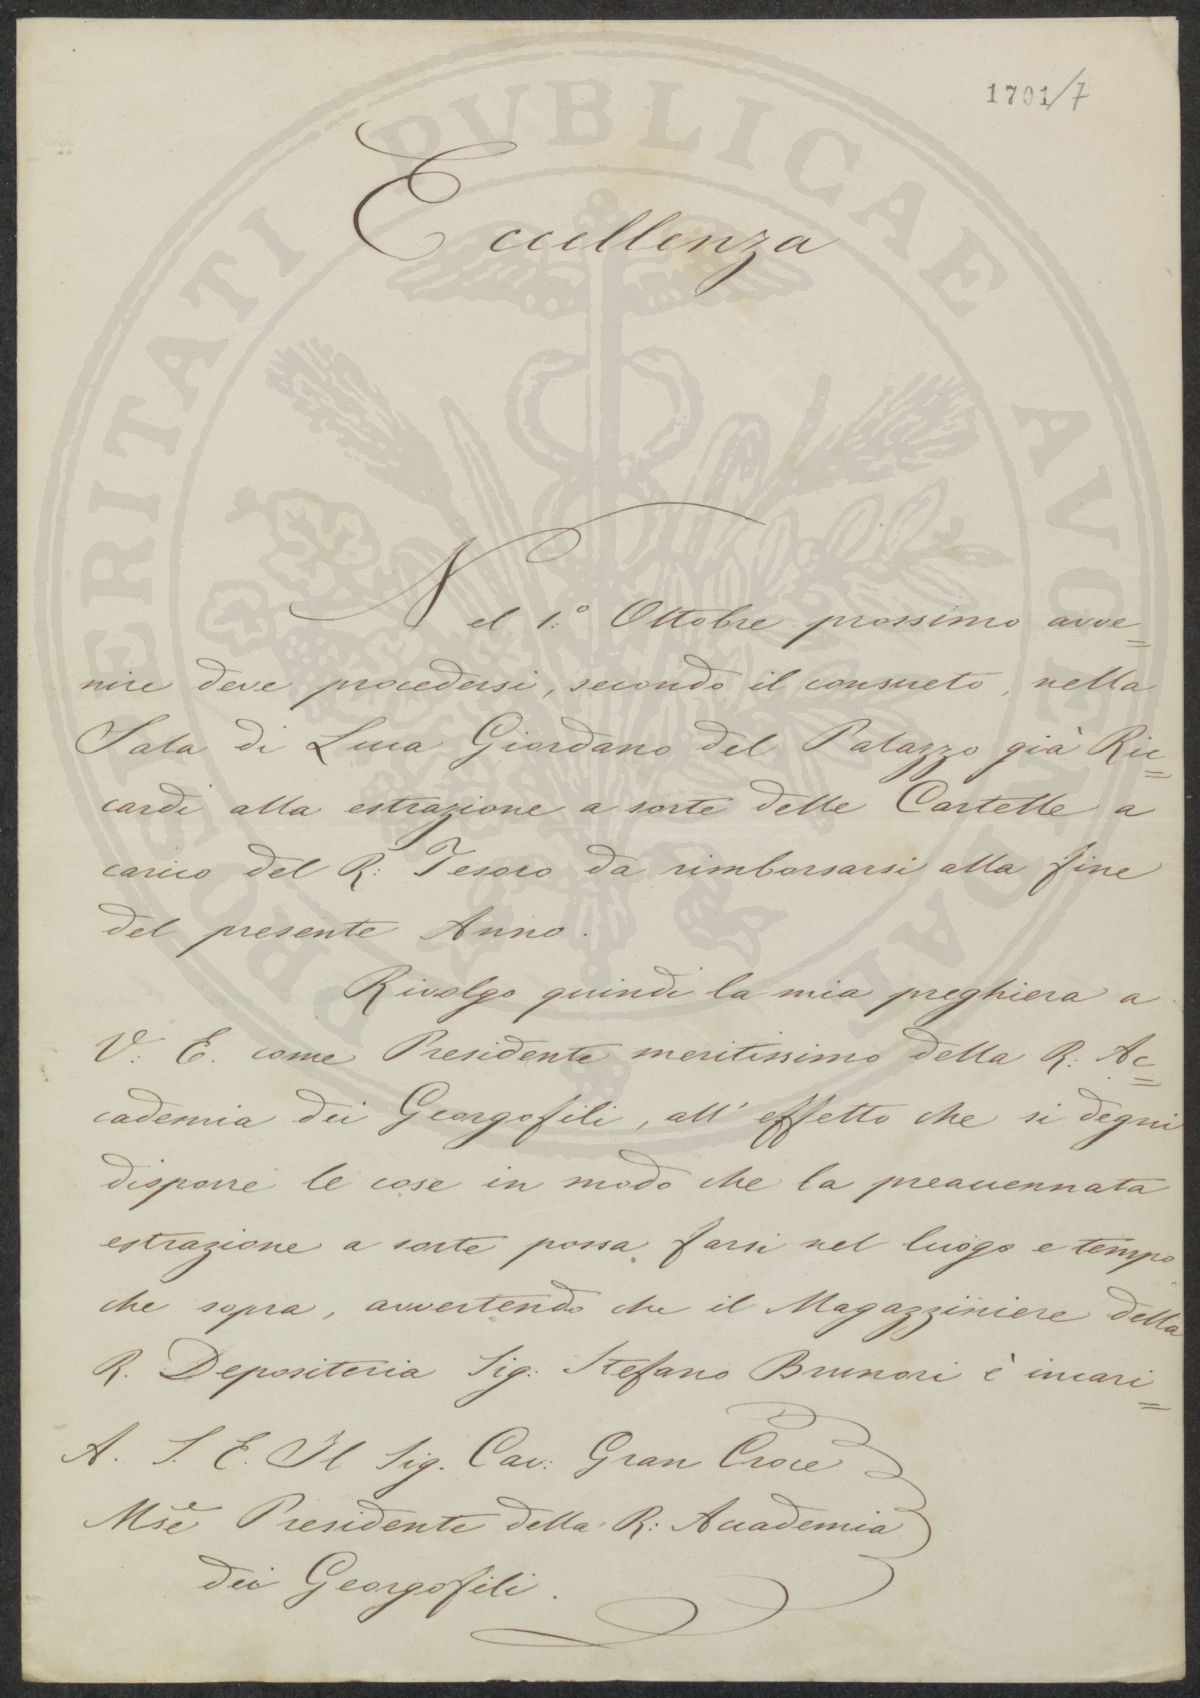 1701/7
Eccellenza
Nel 1.° Ottobre prossimo avve=
nire deve procedersi, secondo il consueto, nella
Sala di Luca Giordano del Palazzo già Ric=
cardi alla estrazione a sorte delle Cartelle a
carico del R: Tesoro da rimborsarsi alla fine
del presente Anno.
Rivolgo quindi la mia preghiera a
V: E. come Presidente meritissimo della R: Ac=
cademia dei Georgofili, all' effetto che si degni
disporre le cose in modo che la preaccennata
estrazione a sorte possa farsi nel luogo e tempo
che sopra, avvertendo che il Magazziniere della
R. Depositeria Sig: Stefano Brunori è incari=
A. S. E. Il Sig. Cav: Gran Croce
Mse Presidente della R: Accademia
dei Georgofili.
PROSPERITATI PVBLICAE AVGENDAE